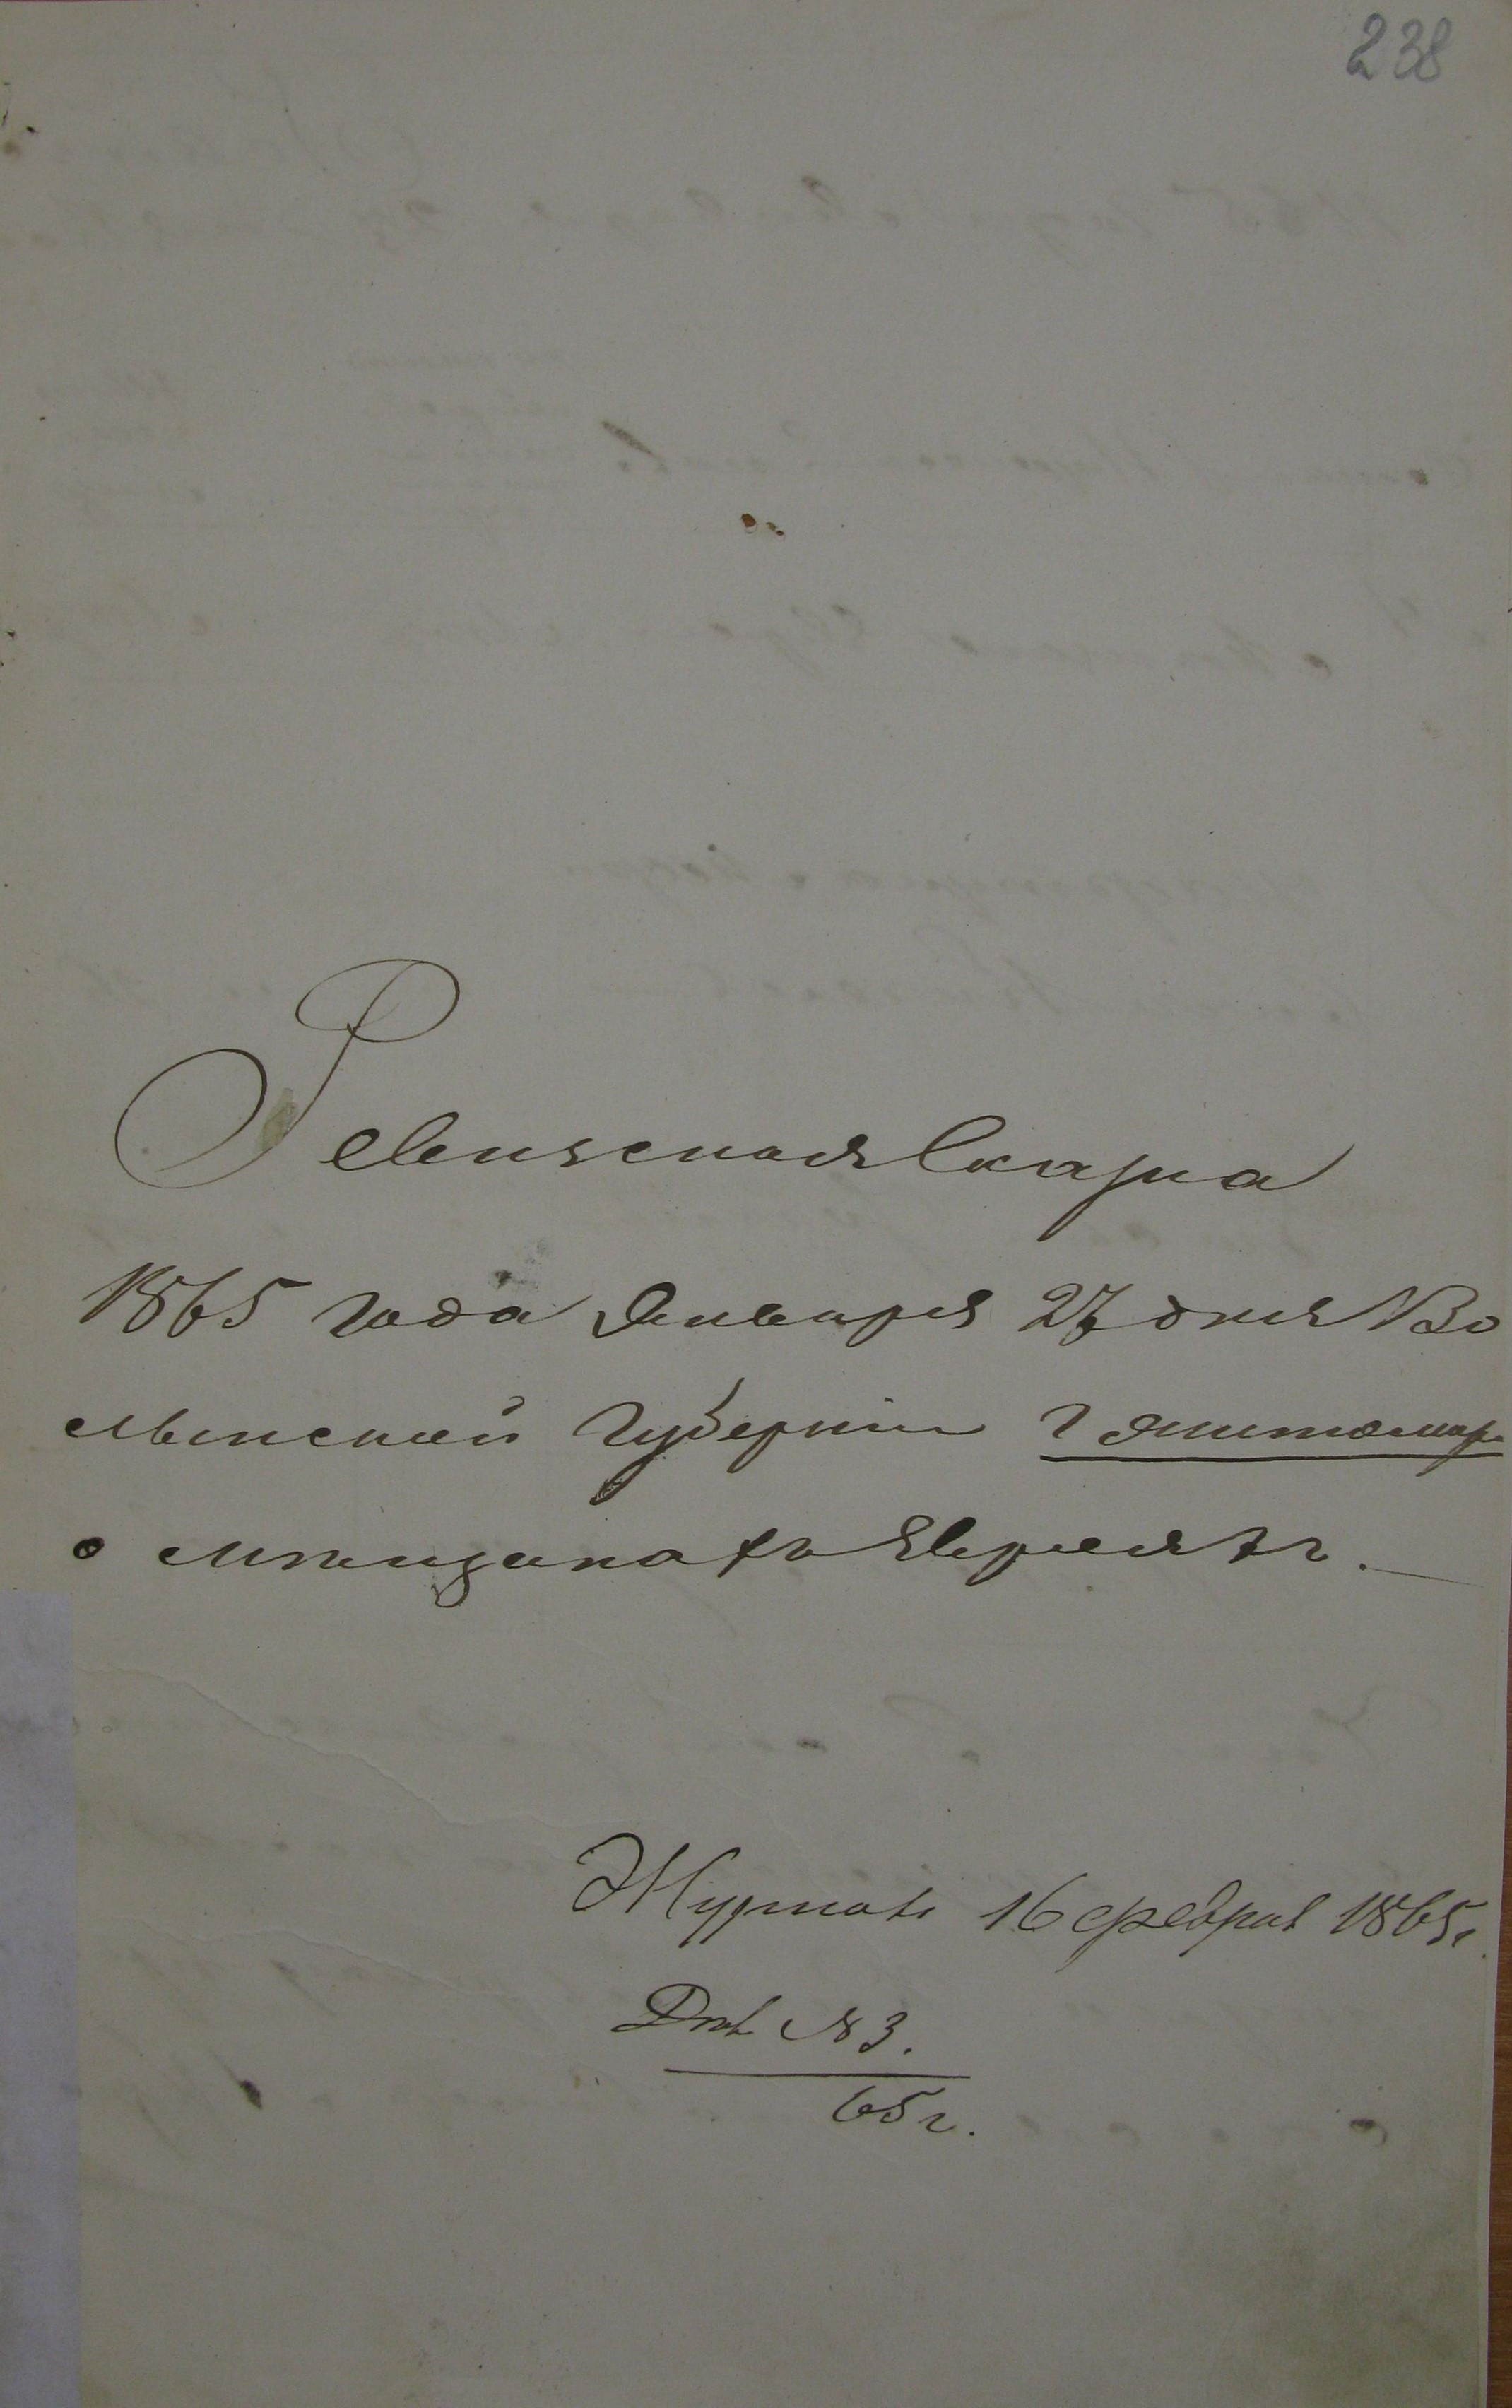 238
Ревизская Сказка
1865 года Января 27 дня Во
лынской Губерніи г Житомир
о мѣщанахъ Евреяхъ.
Журналъ 16 февраля 1865 г.
Дѣл № 3.
65 г.